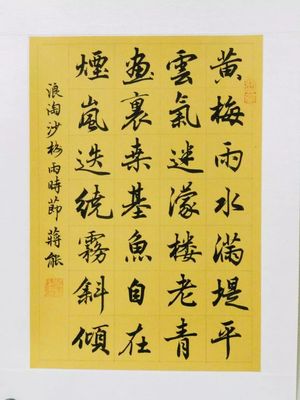 黄梅雨水滿堤平
雲氣迷濛楼老青
畫裏桒基魚自在
煙嵐迭繞霧斜傾
浪淘沙梅雨時節蔣能